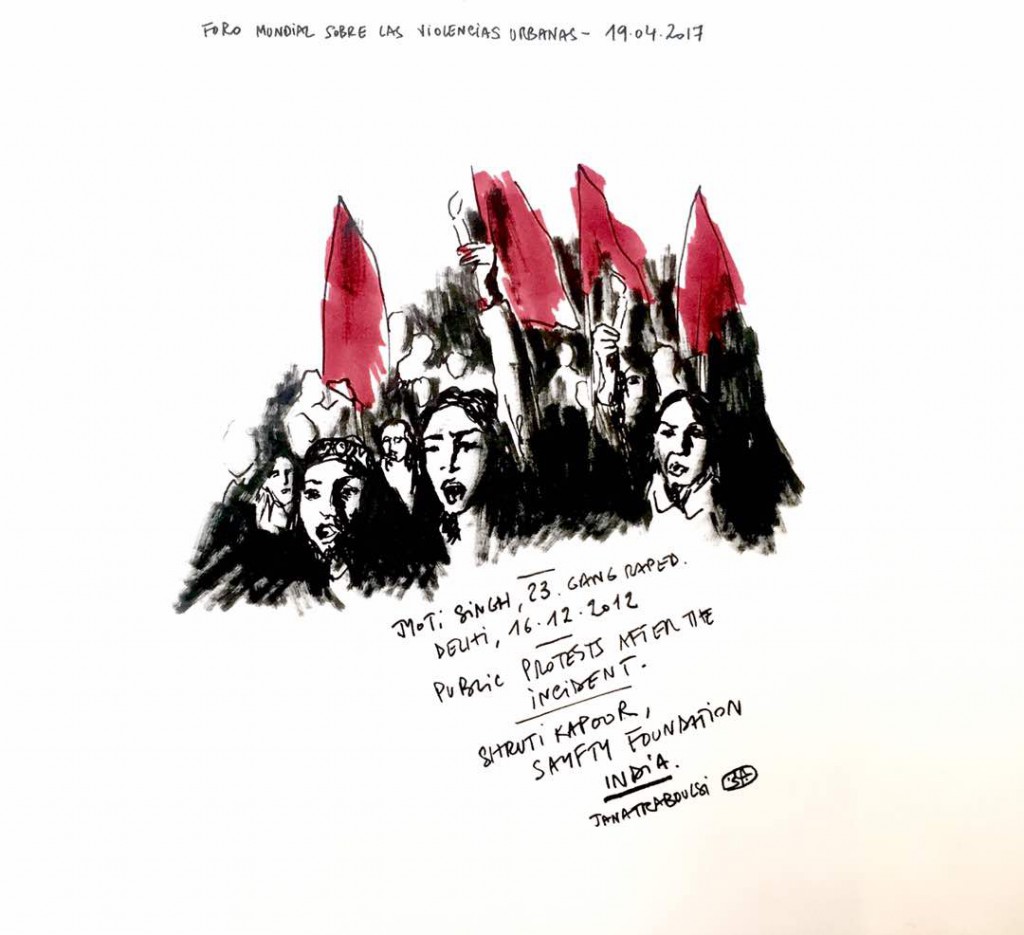 FORO MUNDIAL SOBRE LAS VIOLENCIAS URBANAS - 19.04.2017
JYOTI SINGH, 23. GANG RAPED.
DELHI, 16.12.2012
PUBLIC PROTESTS AFTER THE
INCIDENT.
SHRUTI KAPOOR,
SAYFTY FOUNDATION
INDIA.
JANATRABOULSI